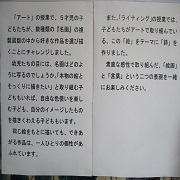 「アート」の授業で、５才児の子
どもたちが、数種類の「名画」の複
製図版の中から好きな作品を選び描
くことにチャレンジしました。
幼児たちの目には、名画はどのよ
うに写るのでしょうか。「本物の絵と
そっくりに描きたい」と取り組む子
どももいれば、自由な色使いを楽し
む子ども、自分のイメージしたもの
を描きたくなる子どももいます。
同じ絵をもとに描いても、できあ
がる作品は、一人ひとりの個性があ
ふれています。
また、「ライティング」の授業では、
子どもたちがアートで取り組んでい
る、この「絵」をテーマに「詩」を
作りました。
素直な感性で取り組んだ、「絵画」
と「言葉」という二つの表現を一緒
にお楽しみください。